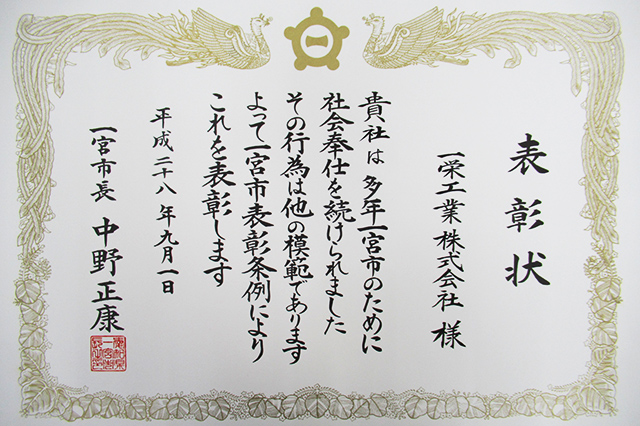 表彰状
一栄工業株式会社 様
貴社は 多年一宮市のために
社会奉仕を続けられました
その行為は他の模範であります
よって一宮市表彰条例により
これを表彰します
平成二十八年九月一日
一宮市長 中野正康